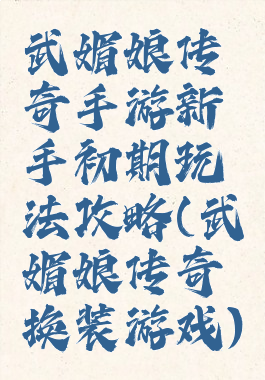 武媚娘传
奇手游新
手初期玩
法攻略(武
媚娘传奇
换装游戏)